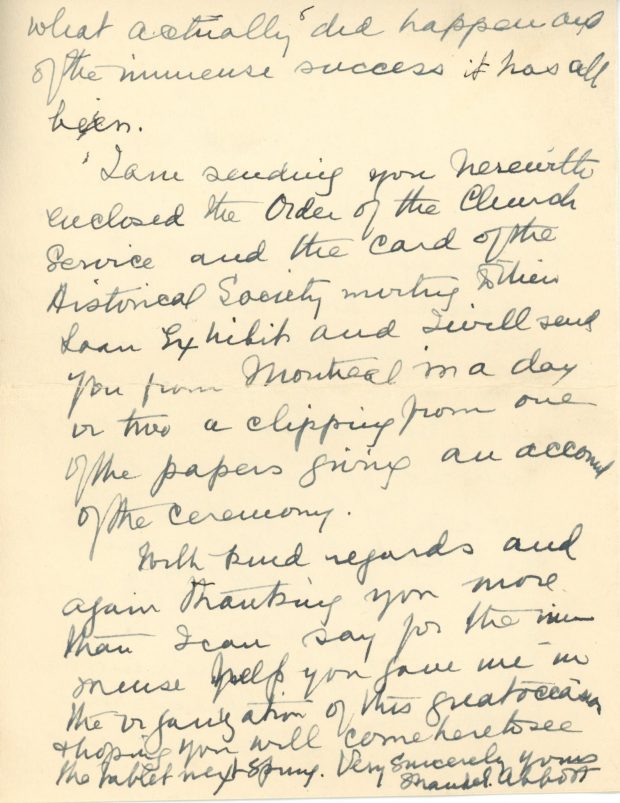 what actually did happen and
of the immense success it has all
been.
I am sending you herewith
enclosed the Order of the Church
Service and the card of the
Historical Society meeting & their
Loan Exhibit and I will send
you from Montreal in a day
or two a clipping from one
of the papers giving an account
of the ceremony.
With kind regards and
again thanking you more
than I can say for the im
mense help you gave me in
the organization of this great occasion
& hoping you will come here to see
the tablet next Spring. Very Sincerely yours
Maude E. Abbott